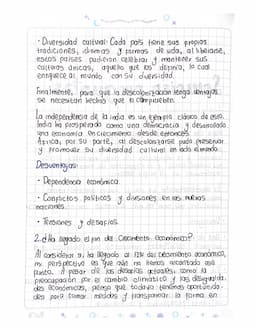 · Diversidad cultural: Cada país tiene sus propias
tradiciones, idiomas y formas de vida, al liberarse,
estos países pudieron celebrar y mantener sus
culturas únicas, aquello que los define, lo cual
enriquece al mundo con su diversidad.
Finalmente, para que la descolonización tenga ventajas
se necesitan hechos que lo comprueben.
La independencia de la India es un ejemplo clásico de esto.
India ha prosperado como una democracia y desarrollado
una economía en crecimiento desde entonces.
África, por su parte, al descolonizarse pudo preservar
y promover su diversidad cultural en todo el mundo.
Desventajas:
· Dependencia económica.
· Conflictos políticos y divisiones en las nuevas
naciones.
· Tensiones y desafíos.
2. ¿Ha llegado el fin de Crecimiento económico?
Al considerar si ha llegado al fin del crecimiento económico,
mi perspectiva es que aún no hemos alcanzado ese
punto. A pesar de los desafíos actuales, como la
preocupación por el cambio climático y las desigualda-
des económicas, pienso que todavía tenemos oportunida-
des para tomar medidas y transformar la forma en